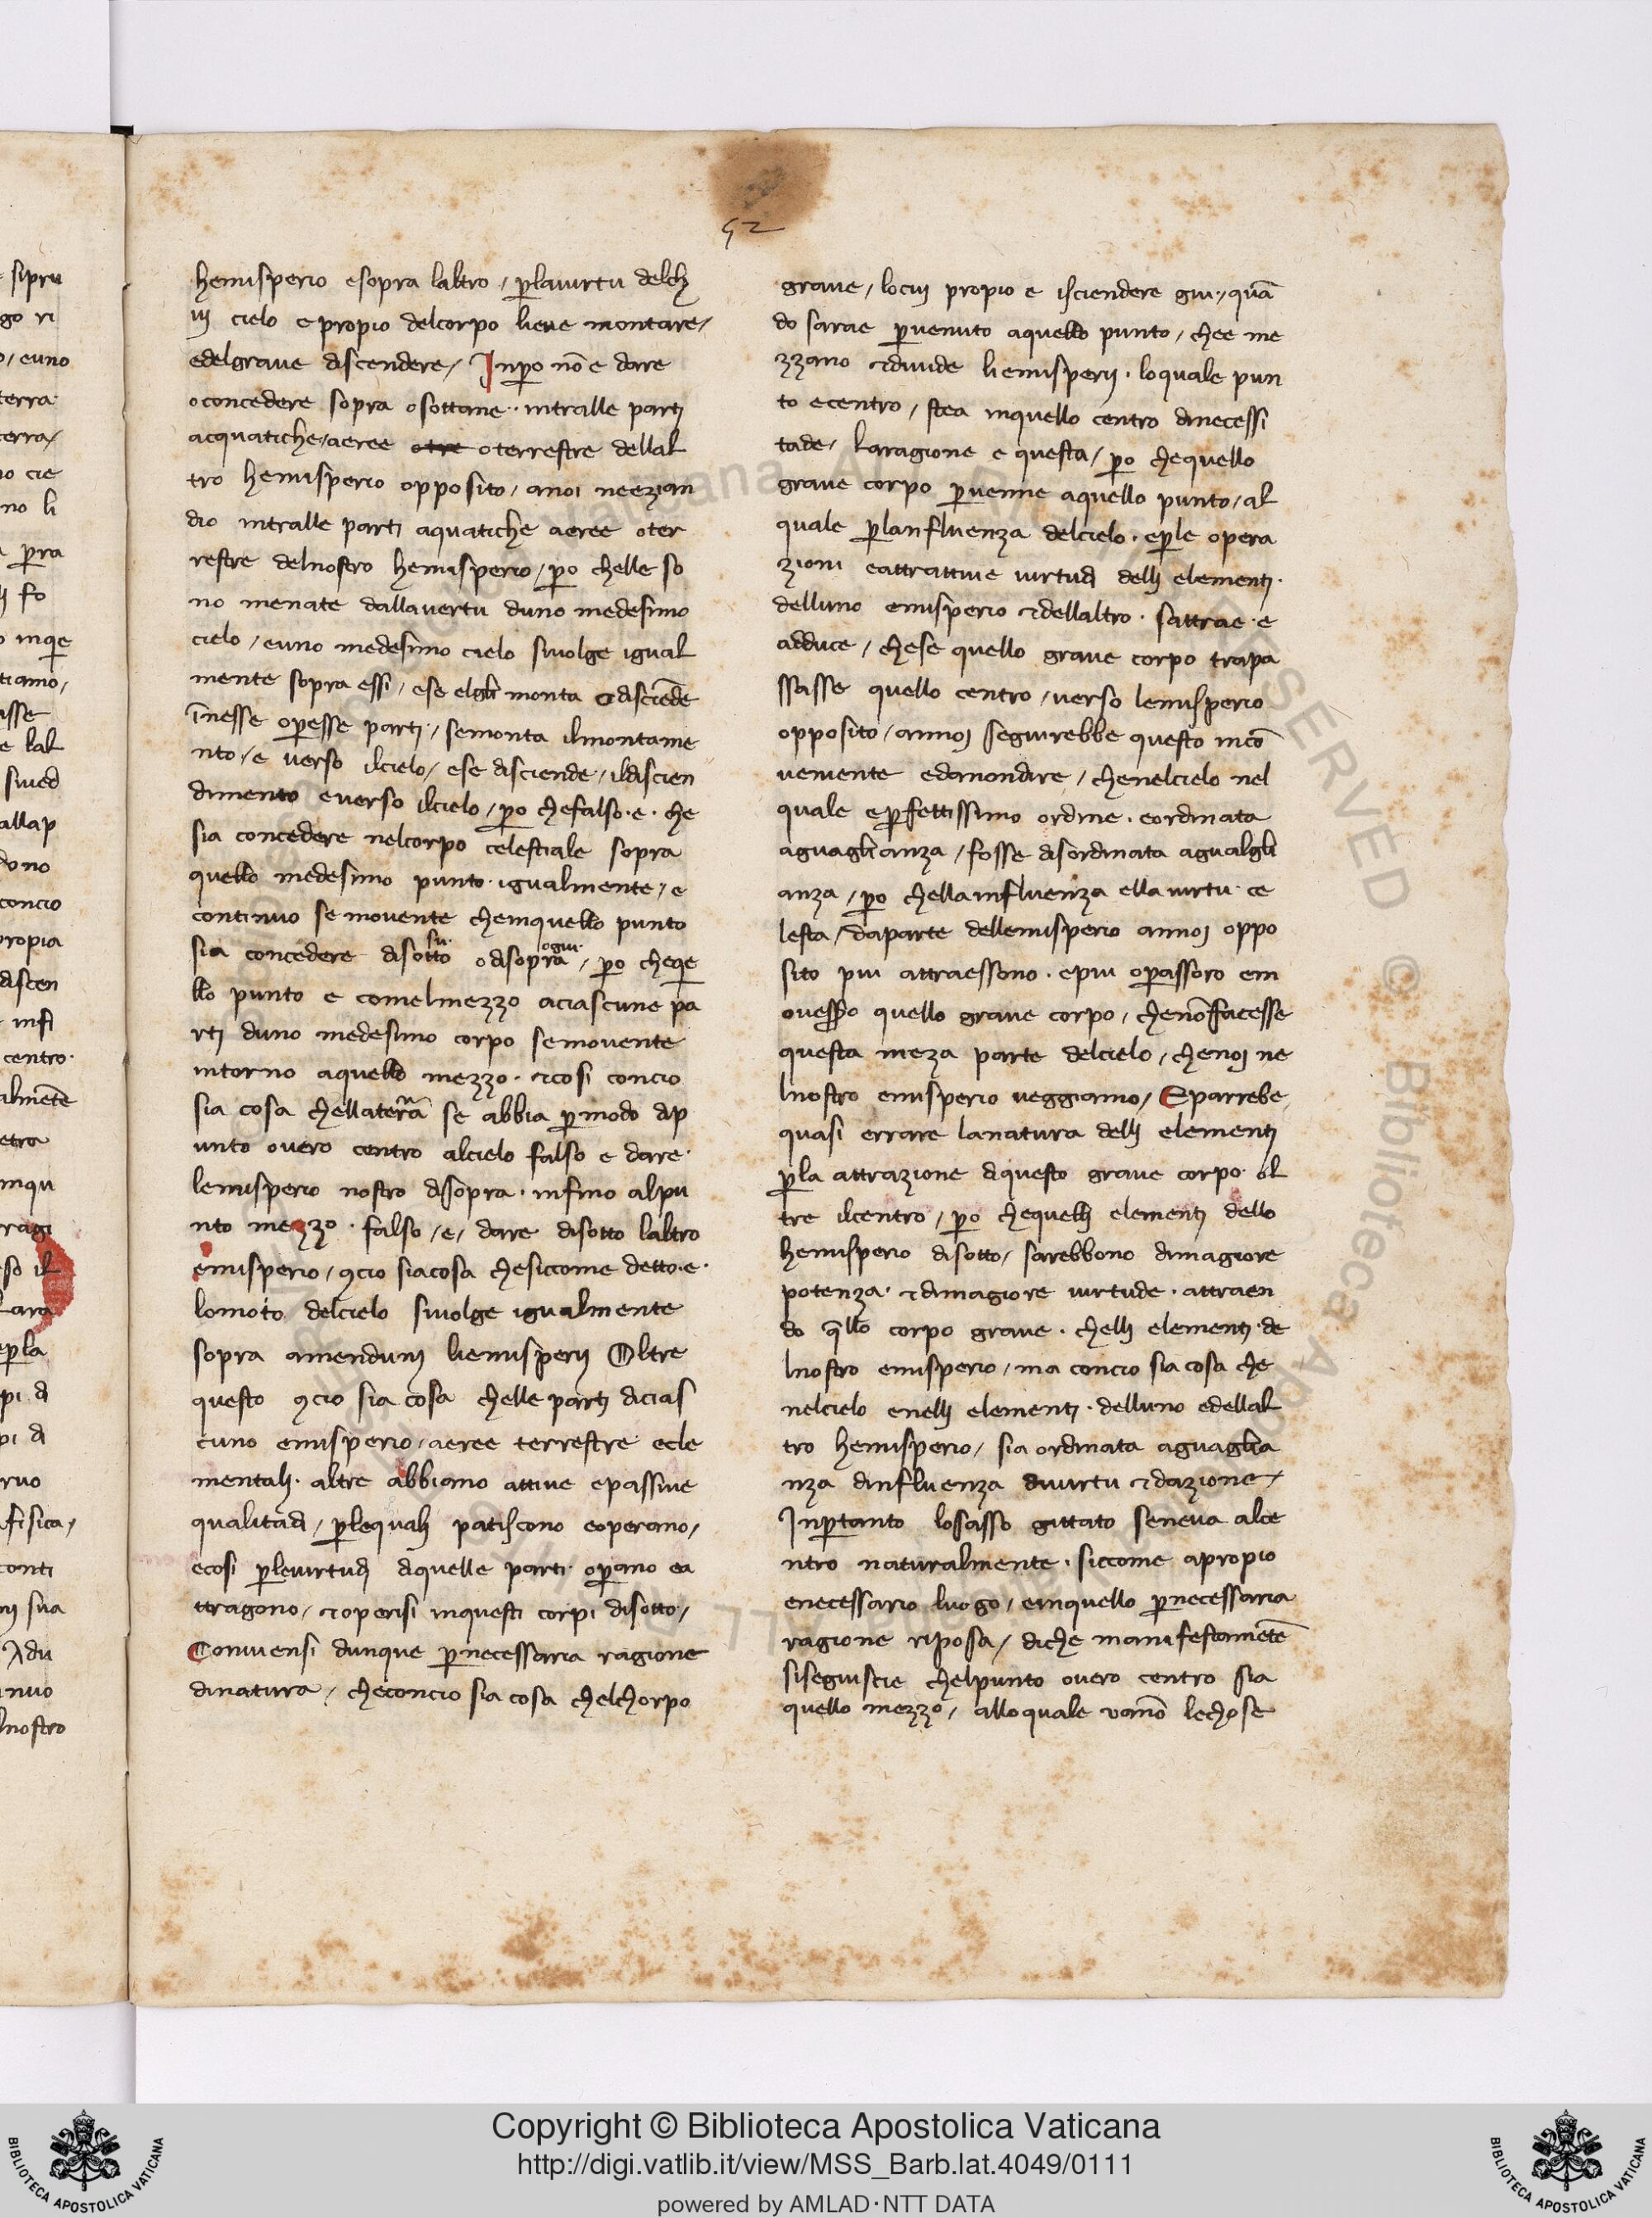 52
hemisperio esopra laltro / ꝑlauirtu delch
uj cielo e propio delcorpo lieue montare /
edelgraue discendere / Inꝑo nō e dare
oconcedere sopra osottane · intralle partj
acquatiche / aeree otre oterrestre dellal
tro hemisperio opposito / anoi neezian
dio intralle parti aquatiche aeree oter
restre delnostro hemisperio / ꝑo chelle so
no menate dallauertu duno medesimo
cielo / euno medesimo cielo siuolge igual
mente sopra essi / ese elgli monta & disciēde
īnesse oꝑesse partj / semonta ilmontame
nto / e uerso ilcielo / ese disciende / ildiscien
dimento euerso ilcielo / ꝑo chefalso · e · che
sia concedere nelcorpo celestiale sopra
quello medesimo punto · igualmente / e
continuo se mouente cheinquello punto
sia concedere disotto su · odisopra ogiu · / ꝑo cheqe
llo punto e comelmezzo aciascune pa
rtj duno medesimo corpo semouente
intorno aquello mezzo · & cosi concio
sia cosa chellaterra se abbia ꝑmodo dip
unto ouero centro alcielo falso e dare ·
lemisperio nostro disopra · infino alpu
nto mezzo · falso / e / dare disotto laltro
emisperio / ꝯcio siacosa chesiccome detto · e ·
lomoto delcielo siuolge igualmente
sopra amendunj liemisperij Oltre
questo ꝯcio sia cosa chelle partj dicias
cuno emisperio / aeree terrestre ecle
mentalj · altre abbiano attiue epassiue
qualitadi / ꝑlequalj patiscono eoperano /
ecosi ꝑleuirtudj diquelle parti · oꝑano ea
ttragono / & operisi inquesti corpi disotto /
Conuiensi dunque ꝑnecessaria ragione
dinatura / checoncio sia cosa chelchorpo
graue / locuj propio e isciendere giu · / quā
do sarae ꝑuenuto aquello punto / chee me
zzano & diuide liemisperij · loquale pun
to ecentro / stea inquello centro dinecessi
tade / Laragione e questa / ꝑo chequello
graue corpo ꝑuenne aquello punto / al
quale ꝑlanfluenza delcielo · eꝑle opera
zioni eattrattiue uirtudi dellj elementj ·
delluno emisperio & dellaltro · sattrae · e
adduce / chese quello graue corpo trapa
ssasse quello centro / uerso lemisperio
opposito / annoj seguirebbe questo incō
ueniente edamondire / chenelcielo nel
quale eꝑfettissimo ordine · eordinata
aguaglianza / fosse disordinata agualgli
anza / ꝑo chellainfluenza ella uirtu · ce
lesta / daparte dellemisperio annoj oppo
sito piu attraessono · epiu oꝑassoro em
ouesꝑo quello graue corpo / chenōfacesse
questa meza parte delcielo / chenoj ne
lnostro emisperio ueggiamo / Eparrebe
quasi errare lanatura dellj elementj
ꝑla attrazione diquesto graue corpo · ol
tre ilcentro / ꝑo chequellj elementj dello
hemisperio disotto / sarebbono dimagiore
potenza · & dimagiore uirtude · attraen
do q̄llo corpo graue · chellj elementj · de
lnostro emisperio / ma concio sia cosa che
nelcielo enellj elementj · delluno edellal
tro hemisperio / sia ordinata aguaglia
nza dinfluenza diuirtu & dazione /
Inꝑtanto losasso gittato seneua alce
ntro naturalmente · siccome apropio
enecessario luogo / einquello ꝑnecessaria
ragione riposa / diche manifestamētē
siseguiscie chelpunto ouero centro sia
quello mezzo / alloquale uānō lechose
Copyright © Biblioteca Apostolica Vaticana
http://digi.vatlib.it/view/MSS_Barb.lat.4049/0111
powered by AMLAD·NTT DATA
BIBLIOTECA APOSTOLICA VATICANA
BIBLIOTECA APOSTOLICA VATICANA